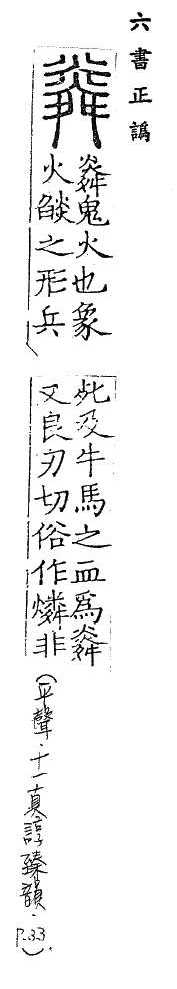 六書正譌
㷠
㷠鬼火也象
火燄之形兵
死及牛馬之血爲㷠
又良刃切俗作燐非
(平聲·十一真諄臻韻·P.33).